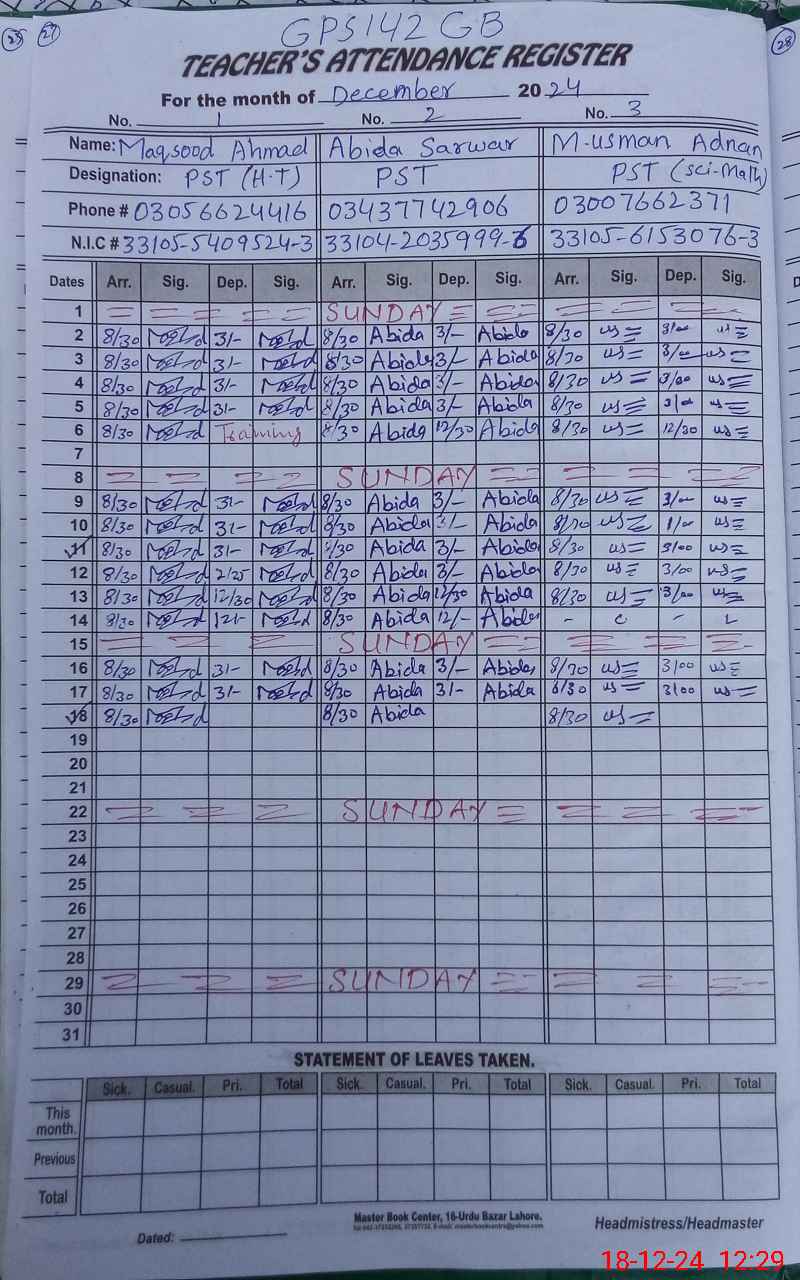 25 27 GPS 142 GB 28
TEACHER'S ATTENDANCE REGISTER
For the month of December 2024
No. 1 No. 2 No. 3
Name: Maqsood Ahmad Abida Sarwar M-usman Adnan
Designation: PST (H.T) PST PST (sci-Math)
Phone # 03056624416 03437742906 03007662371
N.I.C # 33105-5409524-3 33104-2035999-6 33105-6153076-3
Dates Arr. Sig. Dep. Sig. Arr. Sig. Dep. Sig. Arr. Sig. Dep. Sig.
1 SUNDAY
2 8/30 3/- 8/30 Abida 3/- Abida 8/30 3/00
3 8/30 3/- 8/30 Abida 3/- Abida 8/30 3/00
4 8/30 3/- 8/30 Abida 3/- Abida 8/30 3/00
5 8/30 3/- 8/30 Abida 3/- Abida 8/30 3/00
6 8/30 Training 8/30 Abida 12/30 Abida 8/30 12/30
7
8 SUNDAY
9 8/30 3/- 8/30 Abida 3/- Abida 8/30 3/00
10 8/30 3/- 8/30 Abida 3/- Abida 8/30
11 8/30 3/- 8/30 Abida 3/- Abida 8/30 3/00
12 8/30 2/25 8/30 Abida 3/- Abida 8/30 3/00
13 8/30 12/30 8/30 Abida 12/30 Abida 8/30 3/00
14 8/30 12/- 8/30 Abida 12/- Abida
15 SUNDAY
16 8/30 3/- 8/30 Abida 3/- Abida 8/30 3/00
17 8/30 3/- 8/30 Abida 3/- Abida 8/30 3/00
18 8/30 8/30 Abida 8/30
19
20
21
22 SUNDAY
23
24
25
26
27
28
29 SUNDAY
30
31
STATEMENT OF LEAVES TAKEN.
Sick. Casual. Pri. Total Sick. Casual. Pri. Total Sick. Casual. Pri. Total
This month.
Previous
Total
Master Book Center, 16-Urdu Bazar Lahore.
Dated: Headmistress/Headmaster
18-12-24 12:29